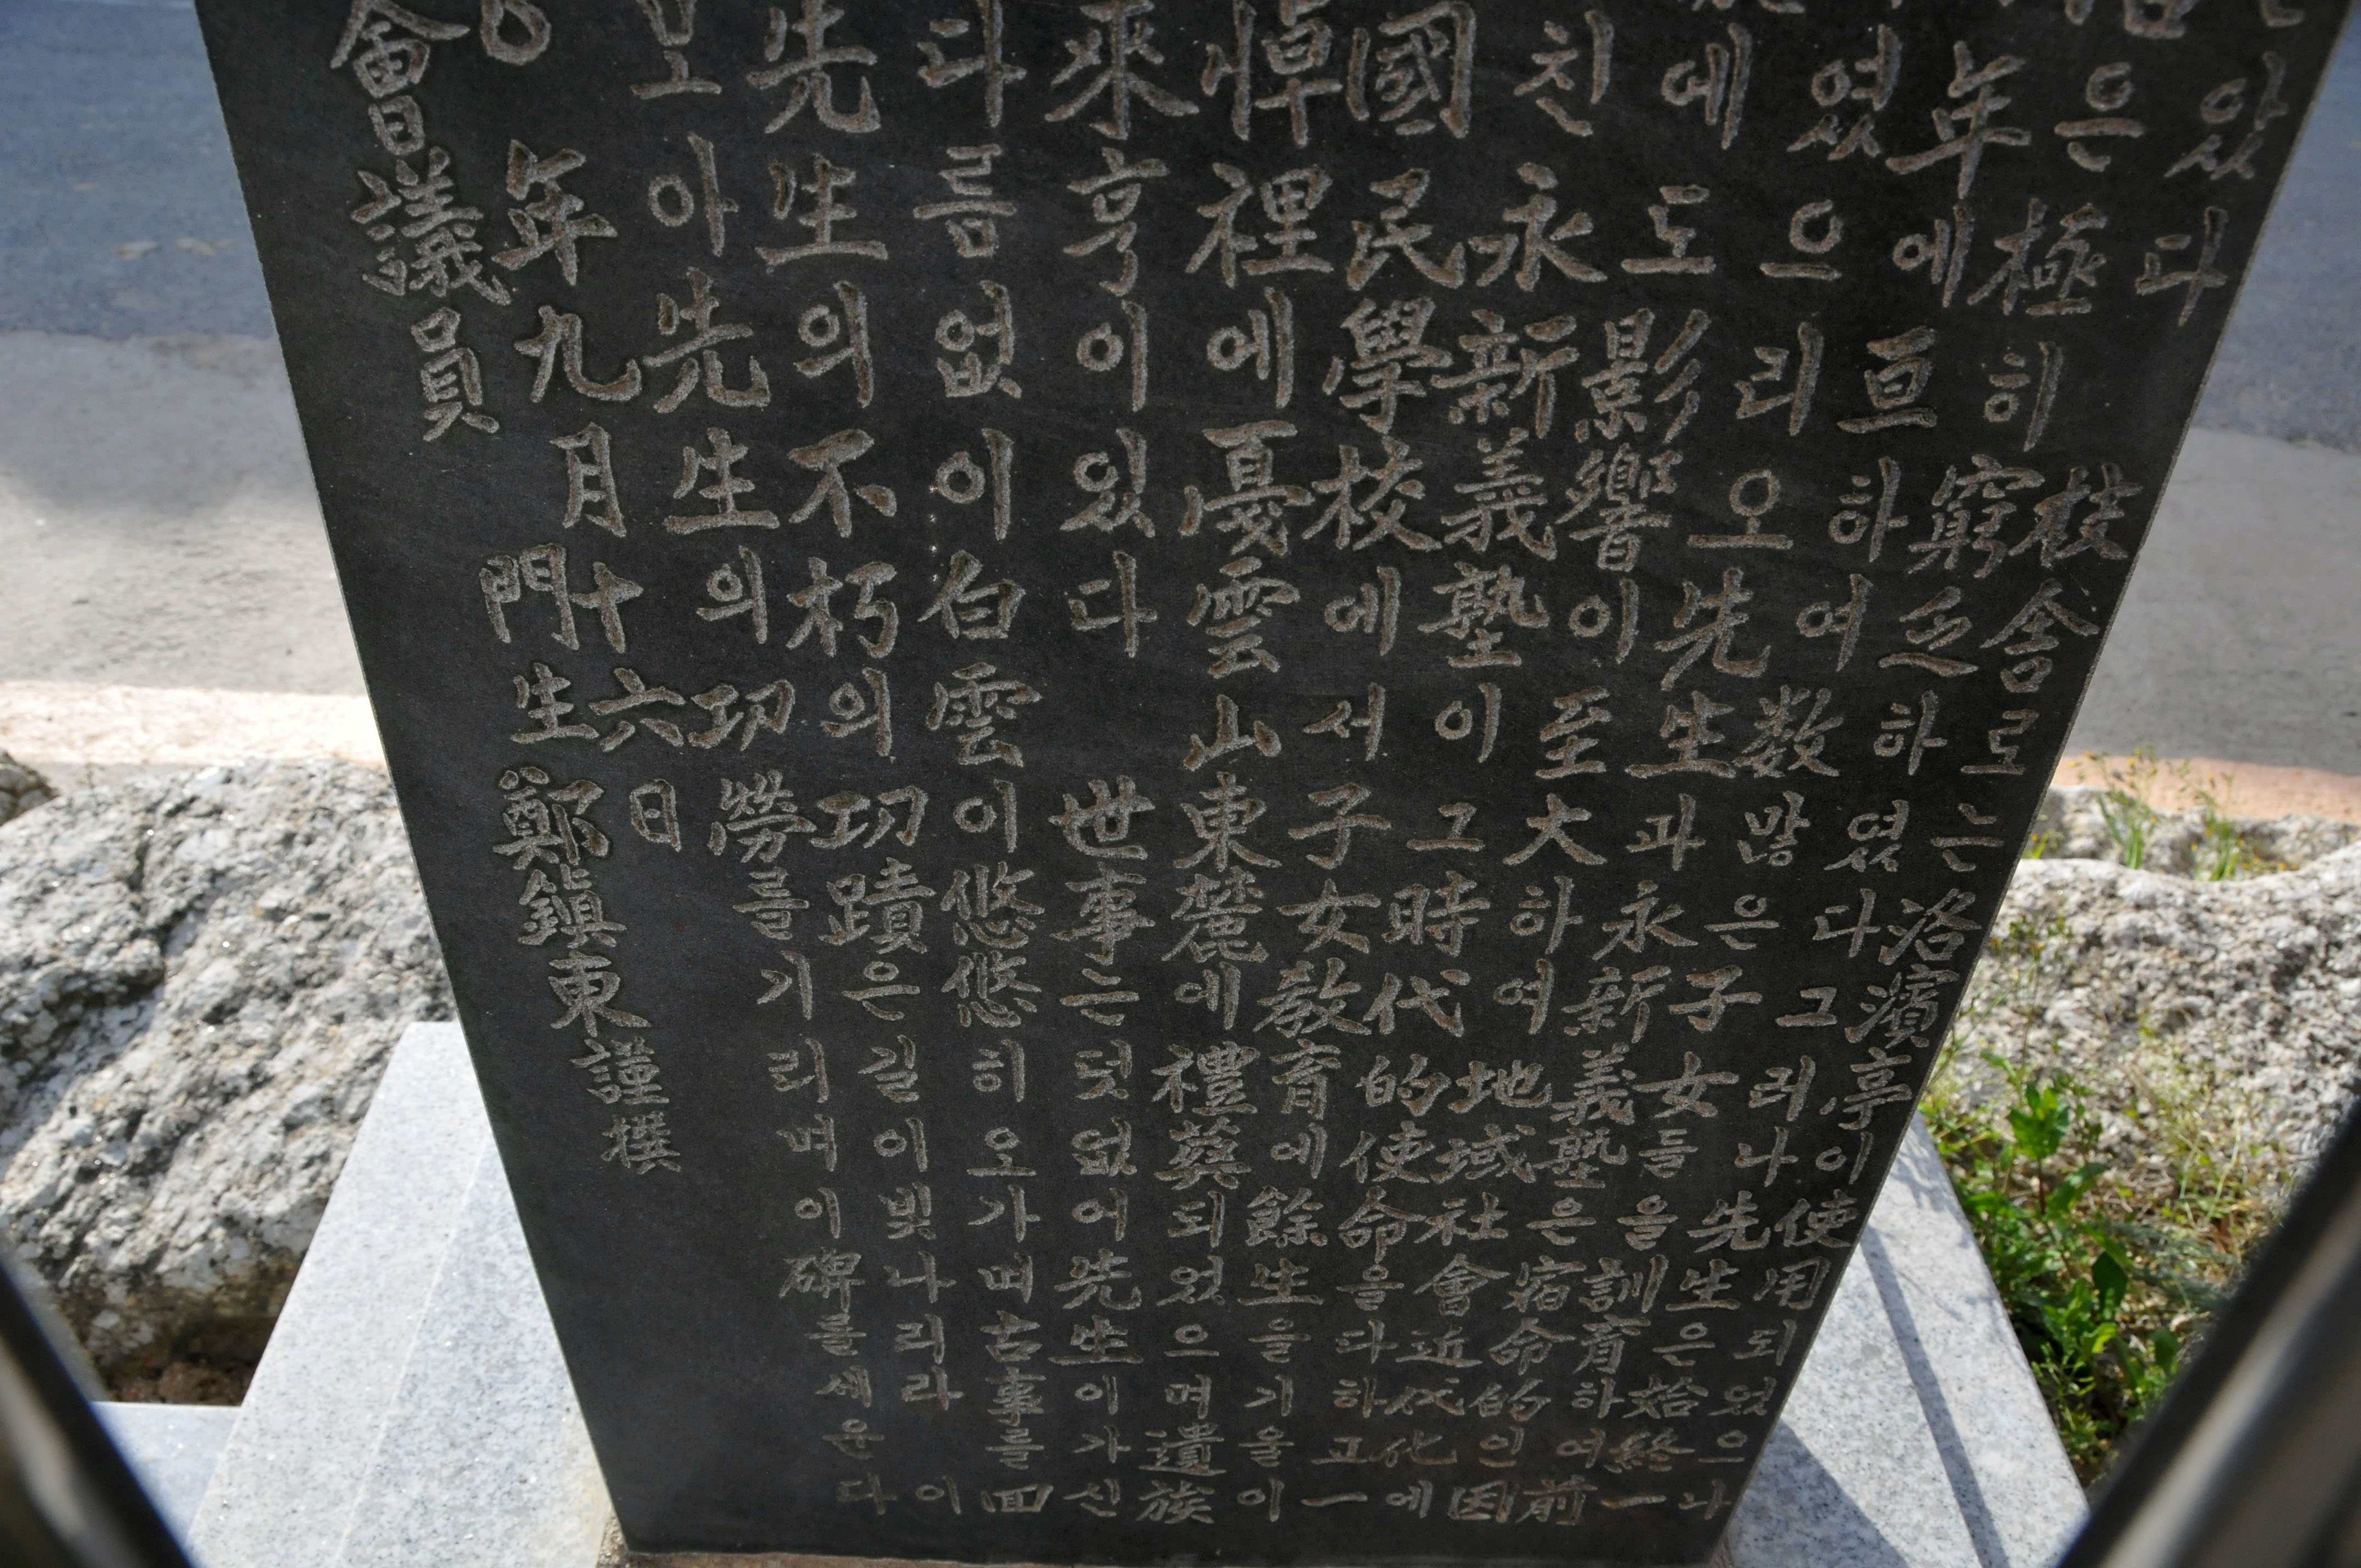 있다 校舍로는 洛濱亭이 使用되었으나
은 極히 窮乏하였다 그리나 先生은 始終一
年에 亘하여 数많은 子女들을 訓育하여 前
였으리오 先生과 永新義塾은 宿命的인 因
에도 影響이 至大하여 地域社會近代化에
친 永新義塾이 그 時代的使命을 다하고 一
國民學校에서 子女教育에 餘生을 기울이
悼裡에 憂雲山東麓에 禮葬되었으며 遺族
來亨이 있다 世事는 덧없어 先生이 가신
다름없이 白雲이 悠悠히 오가며 古事를 回
先生의 不朽의 功蹟은 길이 빛나리라 이
아 先生의 功勞를 기리며 이 碑를 세운다
年九月十六日
會議員 門生 鄭鎭東 謹撰